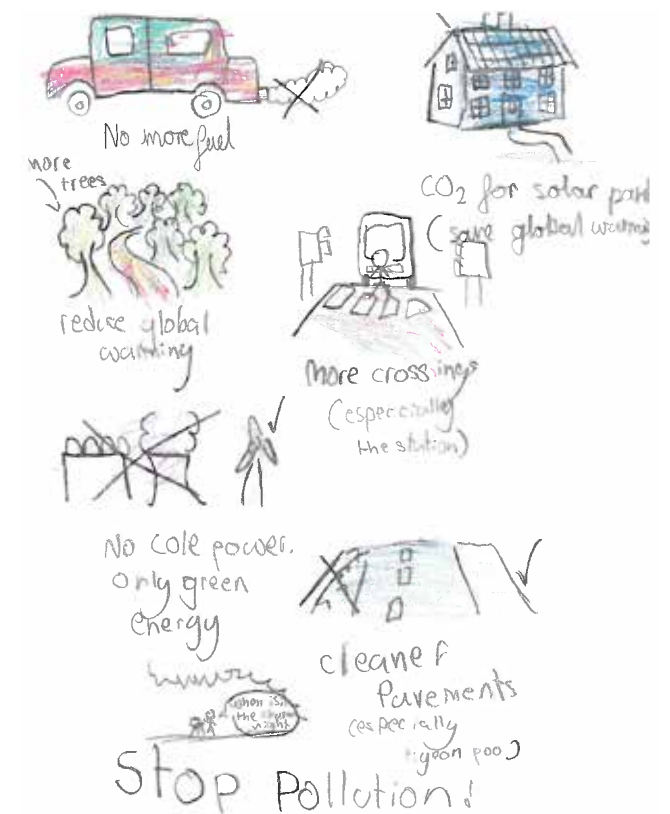 No more fuel
more
trees
CO2 for solar
(save global warming
reduce global
warming
More crossings
(especially
the station)
No Cole power.
only green
energy
cleaner
Pavements
(especially
poo)
when is
the
Stop Pollution!